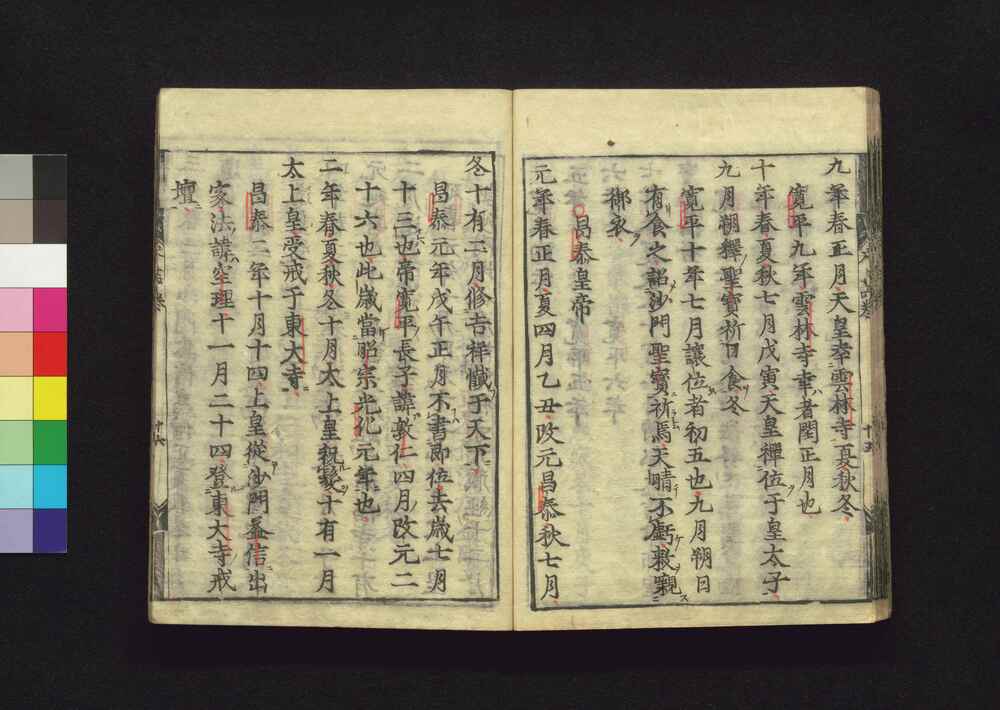 九年春正月天皇幸雲林寺夏秋冬
寛平九年雲林寺幸者閏正月也
十年春夏秋七月戊寅天皇禪位于皇太子
九月朔釋聖寳祈日食冬
寛平十年七月讓位者初五也九月朔日
有食之詔沙門聖寳祈焉天晴不虧敕襯
御衣
昌泰皇帝
元年春正月夏四月乙丑改元昌泰秋七月
冬十有二月修吉祥懺于天下
昌泰元年戊午正月不書即位去歳七月
十三也帝寛平長子諱敦仁四月改元二
十六也此歳當昭宗光化元年也
二年春夏秋冬十月太上皇剃髪十有一月
太上皇受戒于東大寺
昌泰二年十月十四上皇從沙門益信出
家法諱空理十一月二十四登東大寺戒
壇
十五
十六